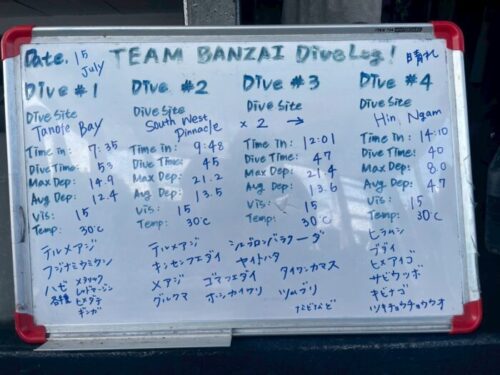 Date. 15 July TEAM BANZAI DiveLog! 晴れ
Dive #1
Dive Site
Tanote Bay
Time in: 7:35
Dive Time: 53
Max Dep: 14.9
Avg Dep: 12.4
Vis: 15
Temp: 30℃
テルメアジ
フジナミウミウシ
ハゼ
各種
メタリック
レッドマージン
ヒメダテ
ギンガ
Dive #2
Dive Site
South West Pinnacle
Time in: 9:48
Dive Time: 45
Max Dep: 21.2
Avg Dep: 13.5
Vis: 15
Temp: 30℃
テルメアジ
キンセンフエダイ
メアジ ゴマフエダイ
グルクマ ホシカイワリ
Dive #3
Dive Site
× 2 →
Time in: 12:01
Dive Time: 47
Max Dep: 21.4
Avg Dep: 13.6
Vis: 15
Temp: 30℃
シェブロンバラクーダ
ヤイトハタ
タイワンカマス
ツムブリ
などなど
Dive #4
Dive Site
Hin Ngam
Time in: 14:10
Dive Time: 40
Max Dep: 8.0
Avg Dep: 4.7
Vis: 15
Temp: 30℃
ヒラムシ
ブダイ
ヒメアイゴ
サビウツボ
キビナゴ
ツキチョウチョウウオ